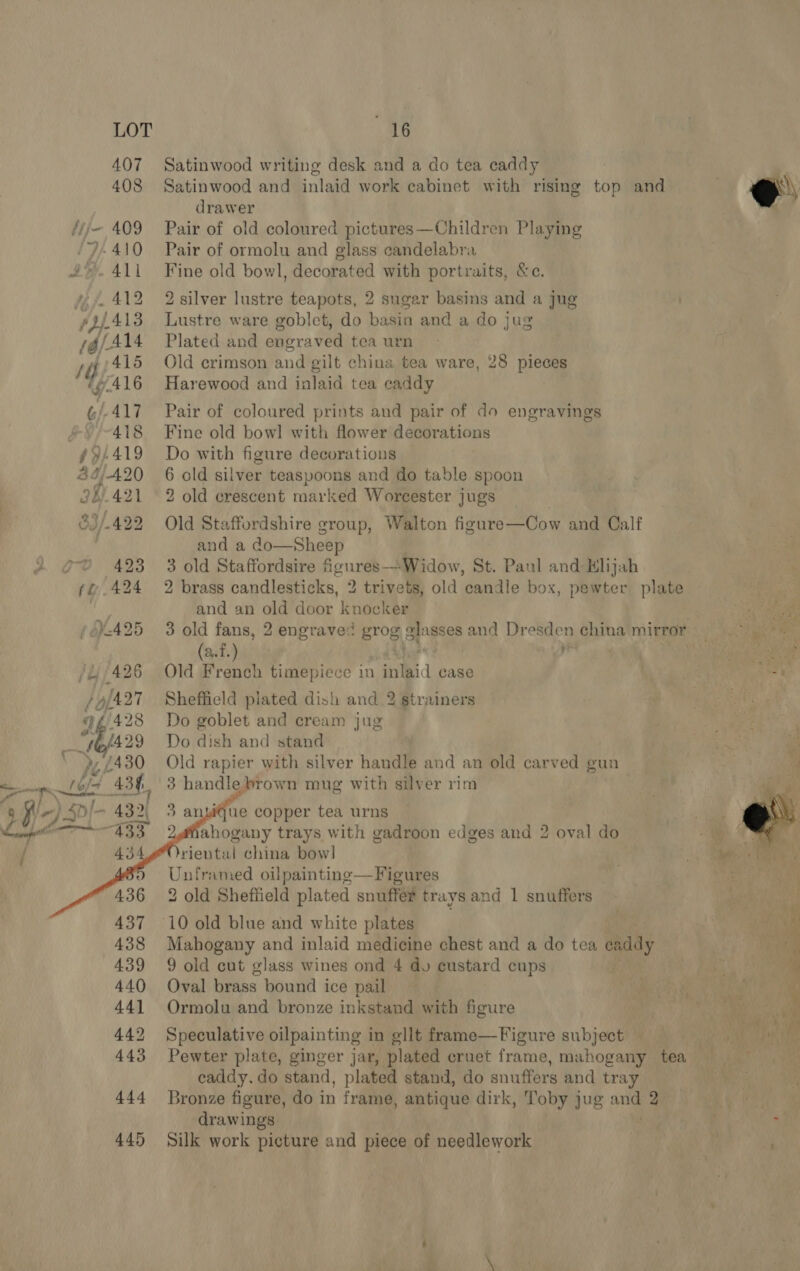 LOT 16
407 Satinwood writing desk and a do tea caddy
408 Satinwood and inlaid work cabinet with rising top and
drawer
409 Pair of old coloured pictures—Children Playing
410 Pair of ormolu and glass candelabra
411 Fine old bowl, decorated with portraits, &c.
412 2 silver lustre teapots, 2 sugar basins and a jug
413 Lustre ware goblet, do basin and a do jug
414 Plated and engraved tea urn
415 Old crimson and gilt china tea ware, 28 pieces
416 Harewood and inlaid tea caddy
417 Pair of coloured prints and pair of do engravings
418 Fine old bowl with flower decorations
419 Do with figure decorations
420 6 old silver teaspoons and do table spoon
421 2 old crescent marked Worcester jugs
422 Old Staffordshire group, Walton figure—Cow and Calf
and a do—Sheep
423 3 old Staffordsire figures—Widow, St. Paul and Elijah
424 2 brass candlesticks, 2 trivets, old candle box, pewter plate
and an old door knocker
425 3 old fans, 2 engraved grog glasses and Dresden china mirror
(a.f.)
426 Old French timepiece in inlaid case
427 Sheffield plated dish and 2 strainers
428 Do goblet and cream jug
429 Do dish and stand
430 Old rapier with silver handle and an old carved gun
431 3 handle brown mug with silver rim
432 3 antique copper tea urns
433 2 mahogany trays with gadroon edges and 2 oval do
434 Oriental china bowl
435 Unframed oilpainting—Figures
436 2 old Sheffield plated snuffer trays and 1 snuffers
437 10 old blue and white plates
438 Mahogany and inlaid medicine chest and a do tea caddy
439 9 old cut glass wines ond 4 do custard cups
440 Oval brass bound ice pail
441 Ormolu and bronze inkstand with figure
442 Speculative oilpainting in gllt frame—Figure subject
443 Pewter plate, ginger jar, plated cruet frame, mahogany tea
caddy, do stand, plated stand, do snuffers and tray
444 Bronze figure, do in frame, antique dirk, Toby jug and 2
drawings
445 Silk work picture and piece of needlework